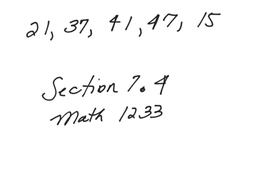 21, 37, 41, 47, 15
Section 7.4
Math 1233